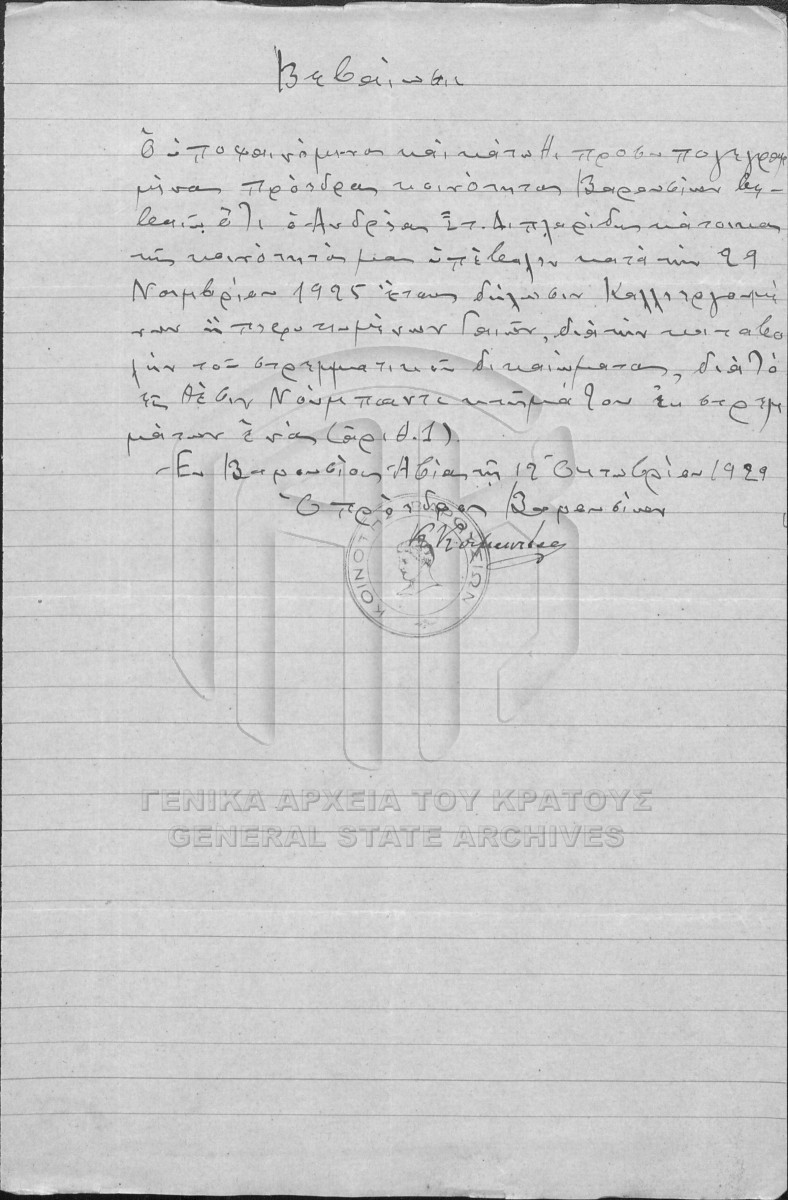 Βεβαίωσις
Ὁ ὑποφαινόμενος καὶ κάτωθι προσυπογεγραμ
μένος πρόεδρος κοινότητος Βαρουσίων βε-
βαιῶ ὅτι ὁ Ἀνδρέας Στ. Διπλαρίδης κάτοικος
τῆς κοινότητός μας ὑπέβαλεν κατὰ τὴν 29
Νοεμβρίου 1925 ἔτους δήλωσιν Καλλιεργουμέ
νων
Γαιῶν, διὰ τὴν καταβο
λὴν τοῦ στρεμματικοῦ δικαιώματος, διὰ τὸ
εἰς θέσιν κτῆμά του ἐκ στρεμ
μάτων ἑνός (ἀριθ. 1).
Ἐν Βαρουσίοις τῇ 12 Ὀκτωβρίου 1929
Ὁ πρόεδρος Βαρουσίων
ΚΟΙΝΟΤΗΣ ΒΑΡΟΥΣΙΩΝ
ΓΕΝΙΚΑ ΑΡΧΕΙΑ ΤΟΥ ΚΡΑΤΟΥΣ
GENERAL STATE ARCHIVES